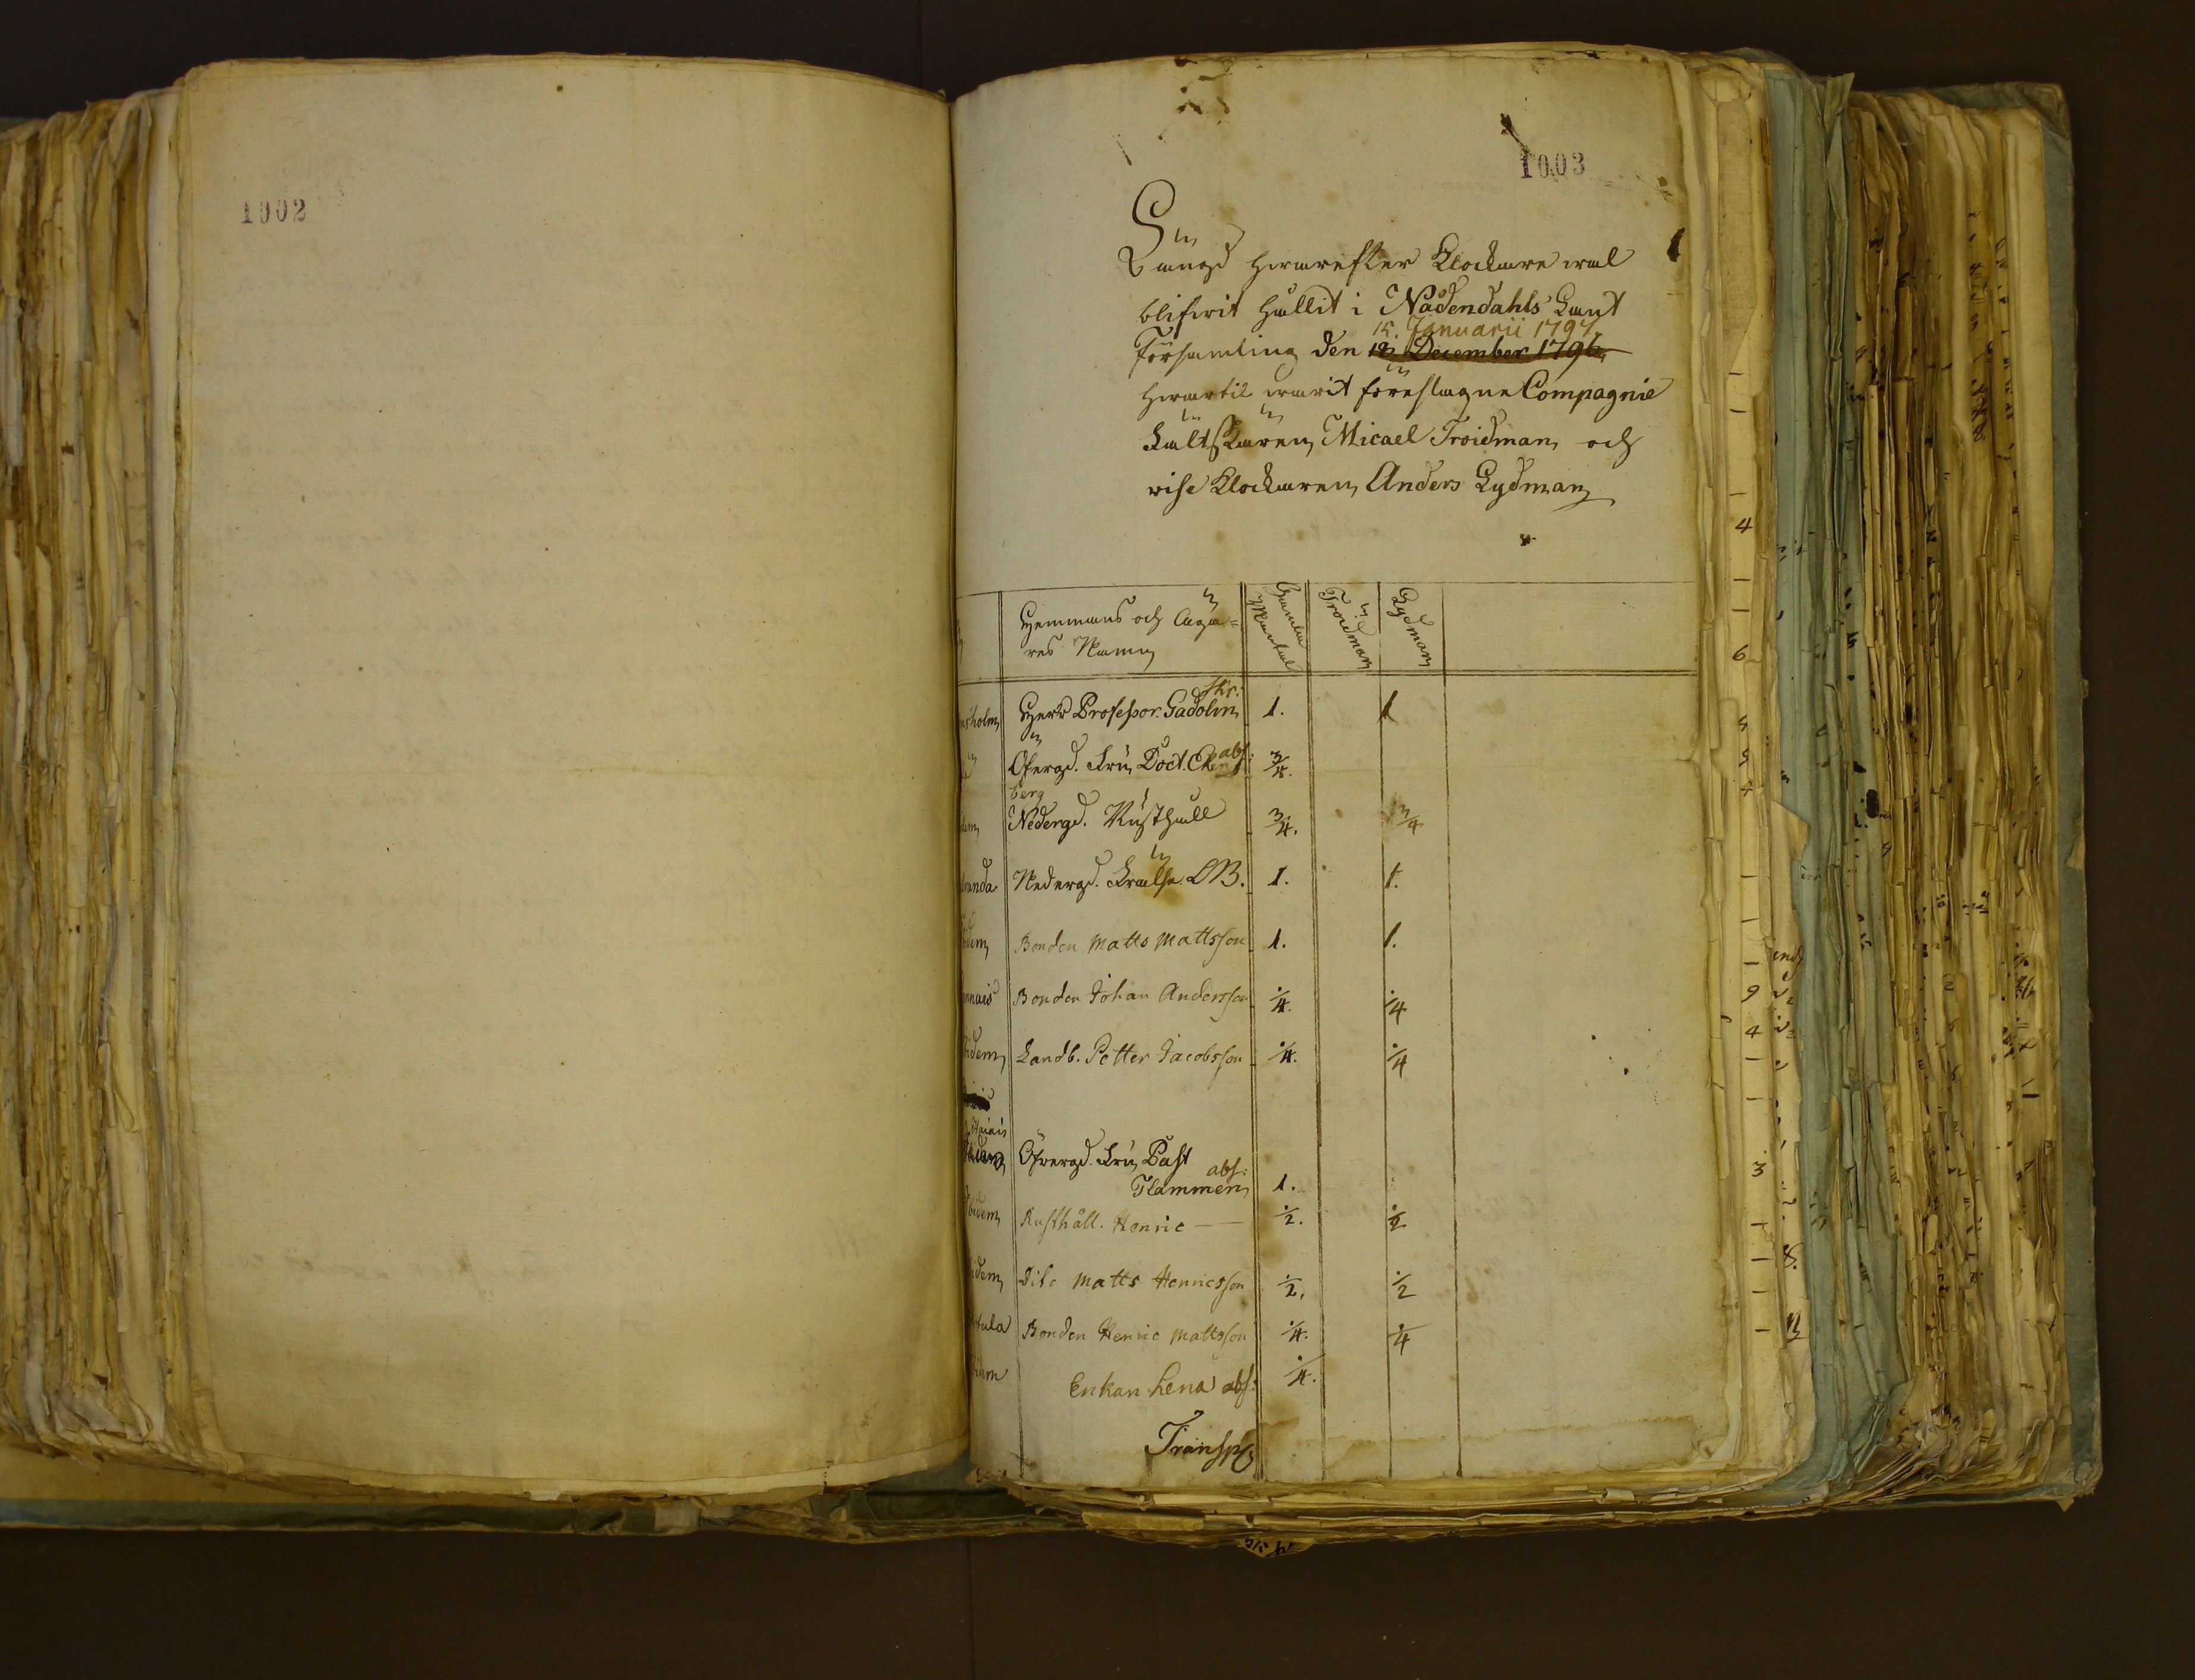 1002
1003
Längd hvarefter Klockare wal
blifwit hållit i Nådendahls Lant
15. Januarii 1797.
Församling den 18 December 1796,
hwartil warit föreslagne Compagnie
Fältskären Micael Troidman och
vise Klockaren Anders Lydman
Hemmans och Äga=
res Namn
Gamla Mantal
Troidman
Lydman
sholm Herr Professor Gadolin skr: 1. 1
Öfvergd. Fru Doct. Ek abs:
berg
dem Nedergd. Rusthåll 3/4. 3/4
Nedergd. Frälse LB. 1. 1.
dem Bonden Matts Mattsson 1. 1.
nais Bonden Johan Andersson 1/4. 1/4
idem Landb. Petter Jacobsson 1/4. 1/4
Öfvergd. Fru Past
Flammen abs: 1.
Ibidem Rusthåll. Henric — 1/2. 1/2
idem Dito Matts Henricsson 1/2. 1/2
tula Bonden Henric Mattsson 1/4. 1/4
Enkan Lena abs: 1/4.
Transp
4
6
9
4
3
8.